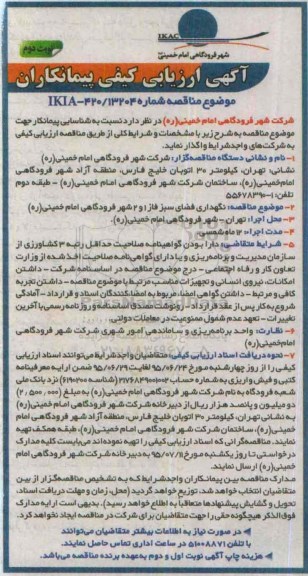 IKAC
شهر فرودگاهی امام خمینی(ره)
نوبت دوم
آگهی ارزیابی کیفی پیمانکاران
موضوع مناقصه شماره IKIA-۴۲۰/۱۳۲۰۴
شرکت شهر فرودگاهی امام خمینی(ره) در نظر دارد نسبت به شناسایی پیمانکار جهت
موضوع مناقصه به شرح زیر با مشخصات و شرایط کلی از طریق مناقصه ارزیابی کیفی
به شرکت‌های واجد شرایط واگذار نماید.
۱- نام و نشانی دستگاه مناقصه‌گزار: شرکت شهر فرودگاهی امام خمینی(ره)
نشانی: تهران، کیلومتر ۳۰ اتوبان خلیج فارس، منطقه آزاد شهر فرودگاهی
امام خمینی(ره)، ساختمان شرکت شهر فرودگاهی امام خمینی(ره) - طبقه دوم
تلفن: ۵۵۶۷۸۳۹۰-۱
۲- موضوع مناقصه: نگهداری فضای سبز فاز ۱ و ۲ شهر فرودگاهی امام خمینی(ره)
۳- محل اجرا: تهران - شهر فرودگاهی امام خمینی(ره)
۴- مدت اجرا: ۱۲ ماه شمسی
۵- شرایط متقاضی: دارا بودن گواهینامه صلاحیت حداقل رتبه ۳ کشاورزی از
سازمان مدیریت و برنامه‌ریزی و یا دارای گواهی‌نامه صلاحیت اخذ شده از وزارت
تعاون کار و رفاه اجتماعی - درج موضوع مناقصه در اساسنامه شرکت - داشتن
امکانات، نیروی انسانی و تجهیزات مناسب مرتبط با موضوع مناقصه - داشتن تجربه
کافی و مرتبط - داشتن گواهی امضا، مربوط به امضاکنندگان اسناد و قرارداد - آمادگی
شروع به کار پس از عقد قرارداد - رونوشت مصدق اساسنامه و روزنامه رسمی با آخرین
تغییرات - تعهد عدم شمول ممنوعیت در معاملات دولتی
۶- نظارت: واحد برنامه‌ریزی و ساماندهی امور شهری شرکت شهر فرودگاهی
امام خمینی(ره)
۷- نحوه دریافت اسناد ارزیابی کیفی: متقاضیان واجد شرایط می‌توانند اسناد ارزیابی
کیفی را از روز چهارشنبه مورخ ۹۵/۰۶/۲۴ لغایت ۹۵/۰۶/۲۹ ضمن ارایه معرفینامه
کتبی و فیش واریزی به شماره حساب نزد بانک ملی
شعبه فرودگاه به نام شرکت شهر فرودگاهی امام خمینی(ره) به مبلغ (۲,۵۰۰,۰۰۰)
دو میلیون و پانصد هزار ریال از دبیرخانه شرکت شهر فرودگاهی امام خمینی(ره)
به نشانی تهران، کیلومتر ۳۰ اتوبان خلیج فارس، منطقه آزاد شهر فرودگاهی امام
خمینی(ره)، ساختمان شرکت شهر فرودگاهی امام خمینی(ره)، طبقه همکف تهیه
نمایند. مناقصه‌گرانی که اسناد ارزیابی کیفی را تهیه نموده‌اند می‌بایست کلیه مدارک
درخواستی تا روز یکشنبه مورخ به دبیرخانه شرکت شهر فرودگاهی امام خمینی
(ره) ارسال نمایند.
مدارک مناقصه بین پیمانکاران واجد شرایط که به تشخیص مناقصه‌گزار از بین
متقاضیان انتخاب خواهد شد، توزیع خواهد گردید (محل، زمان و مهلت دریافت اسناد،
تحویل و گشایش پیشنهادها متعاقباً به اطلاع خواهد رسید). بدیهی است ارایه مدارک
فوق الذکر هیچگونه حقی را جهت متقاضیان برای شرکت در مناقصه ایجاد نخواهد کرد.
در صورت نیاز به اطلاعات بیشتر متقاضیان می‌توانند
با تلفن ۵۱۰۰۸۸۷۱ در ساعت اداری تماس حاصل نمایند.
هزینه چاپ آگهی نوبت اول و دوم به عهده برنده مناقصه می‌باشد.